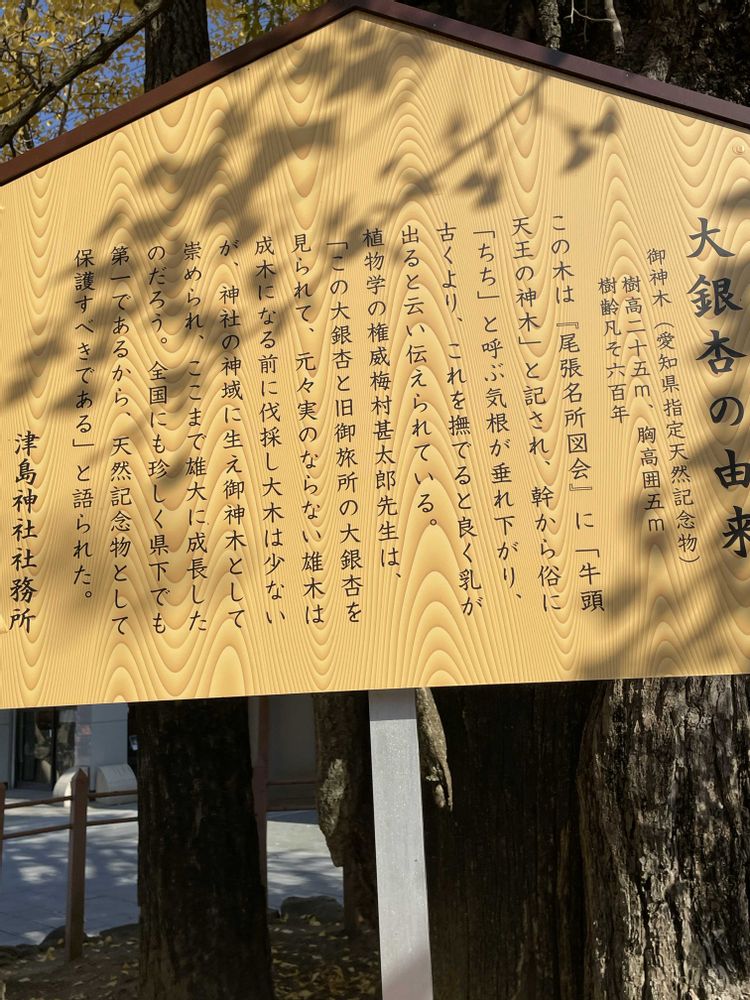 大銀杏の由来
御神木（愛知県指定天然記念物）
樹高二十五ｍ、胸高囲五ｍ
樹齢凡そ六百年
この木は『尾張名所図会』に「牛頭
天王の神木」と記され、幹から俗に
「ちち」と呼ぶ気根が垂れ下がり、
古くより、これを撫でると良く乳が
出ると云い伝えられている。
植物学の権威梅村甚太郎先生は、
「この大銀杏と旧御旅所の大銀杏を
見られて、元々実のならない雄木は
成木になる前に伐採し大木は少ない
が、神社の神域に生え御神木として
崇められ、ここまで雄大に成長した
のだろう。全国にも珍しく県下でも
第一であるから、天然記念物として
保護すべきである」と語られた。
津島神社社務所